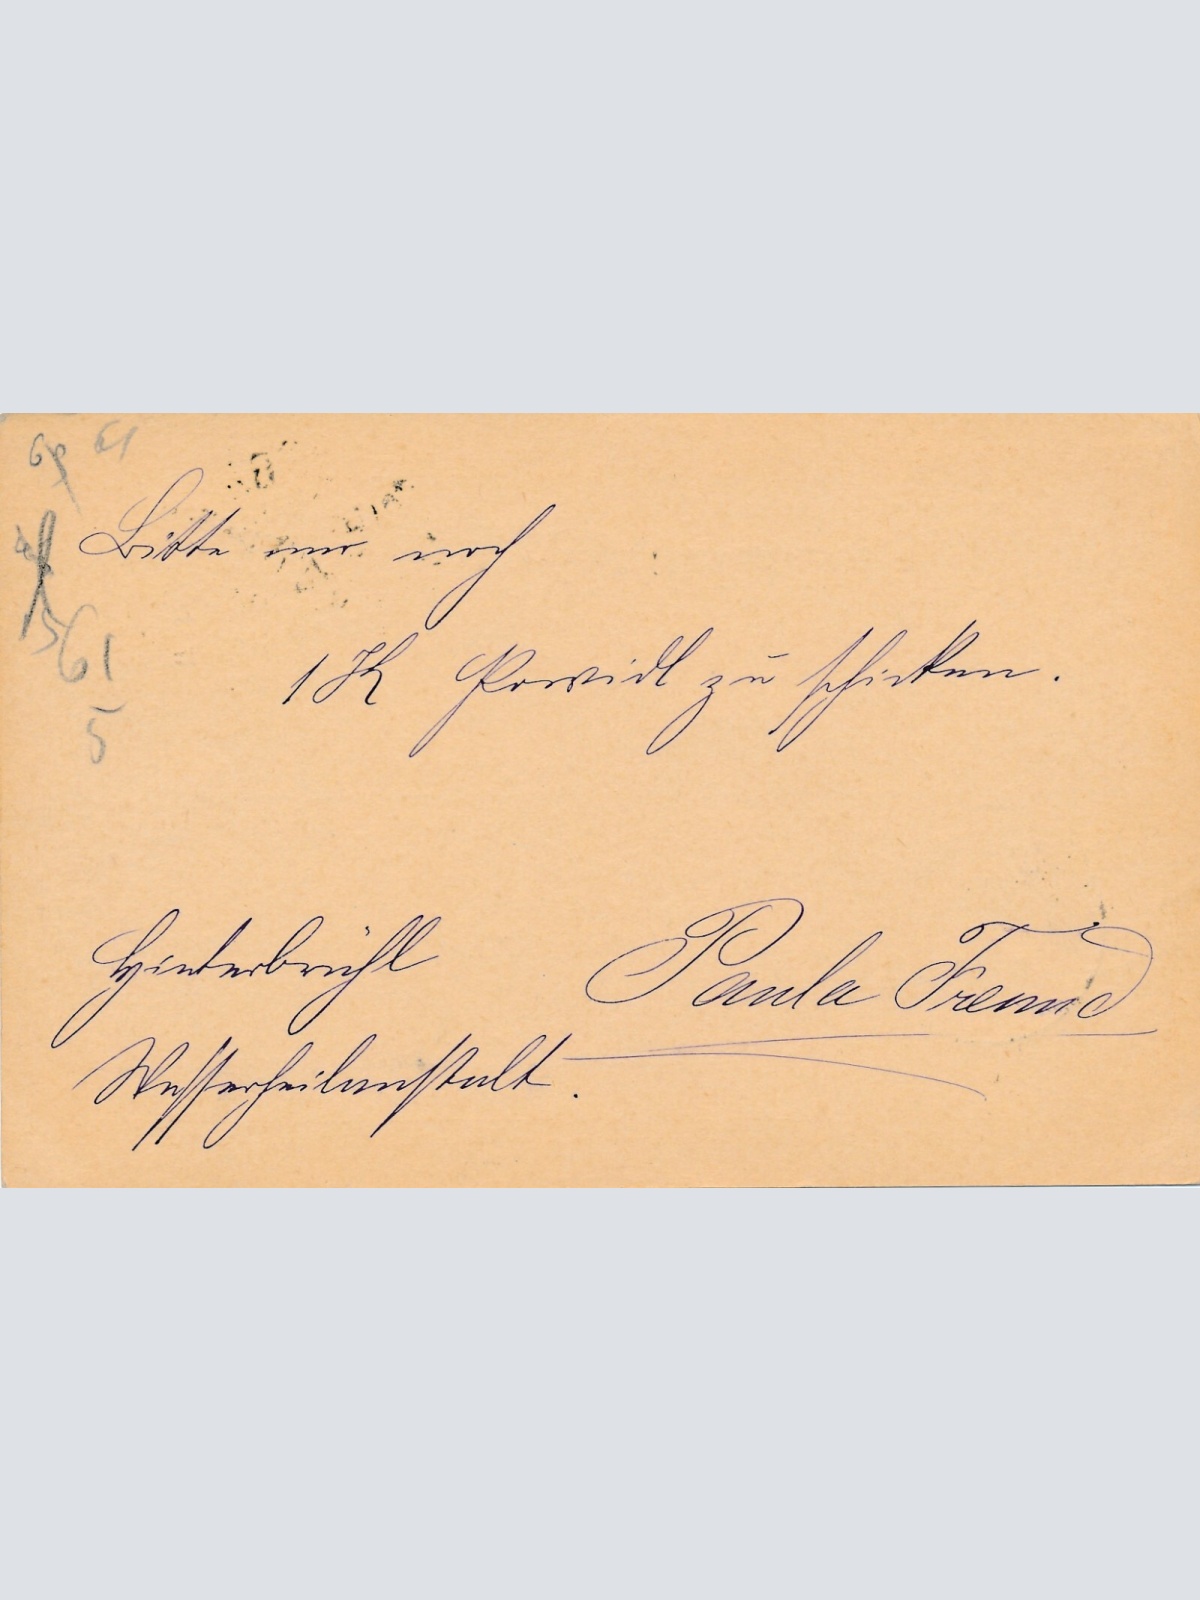 61
Bitte mir noch
1 K Powidl zu schicken.
561
5
Hinterbrühl
Paula Freund
Wasserheilanstalt.